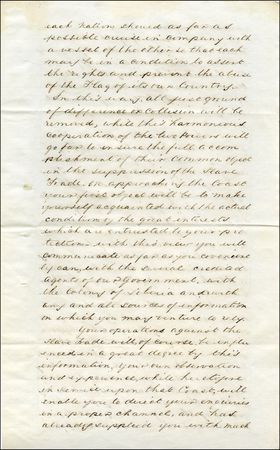 each nation should as far as
possible cruise in company with
a vessel of the other so that each
may be in a condition to assert
the rights and prevent the abuse
of the Flag of its own Country.
In this way, all just ground
of difference or collision will be
removed, while this harmonious
cooperation of the two Powers will
go far to insure the full accom-
plishment of their common object
in the suppression of the Slave
Trade. On approaching the Coast
your first object will be to make
yourself acquainted with the actual
condition of the great interests
which are entrusted to your pro-
tection. With this view you will
communicate as far as you conveniently
can, with the several credited
agents of our Government, with
the Colony of Liberia and with
any and all sources of information
on which you may venture to rely.
Your operations against the
Slave Trade will of course, be influ-
enced in a great degree by this
information, your own observation
and experience, while heretofore
in service upon that Coast, will
enable you to direct your enquiries
in a proper channel, and has
already supplied you with much